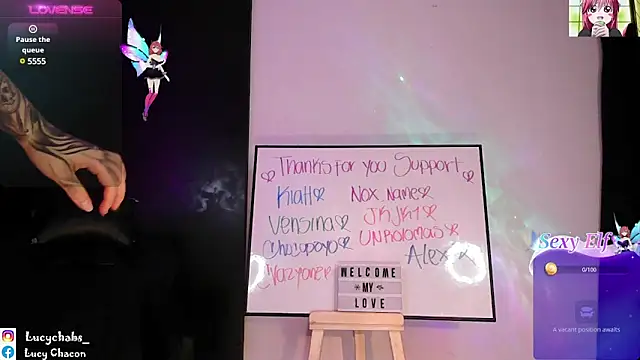 LOVENSE
Pause the
queue
5555
Thanks for you Support
Kiatt
Nox_Name
Vensina
JKJK1
Chocopoyo
UNKolomas
Alex
WELCOME
MY
LOVE
Sexy Elf
0/100
A vacant position awaits
Lucychabs_
Lucy Chacon